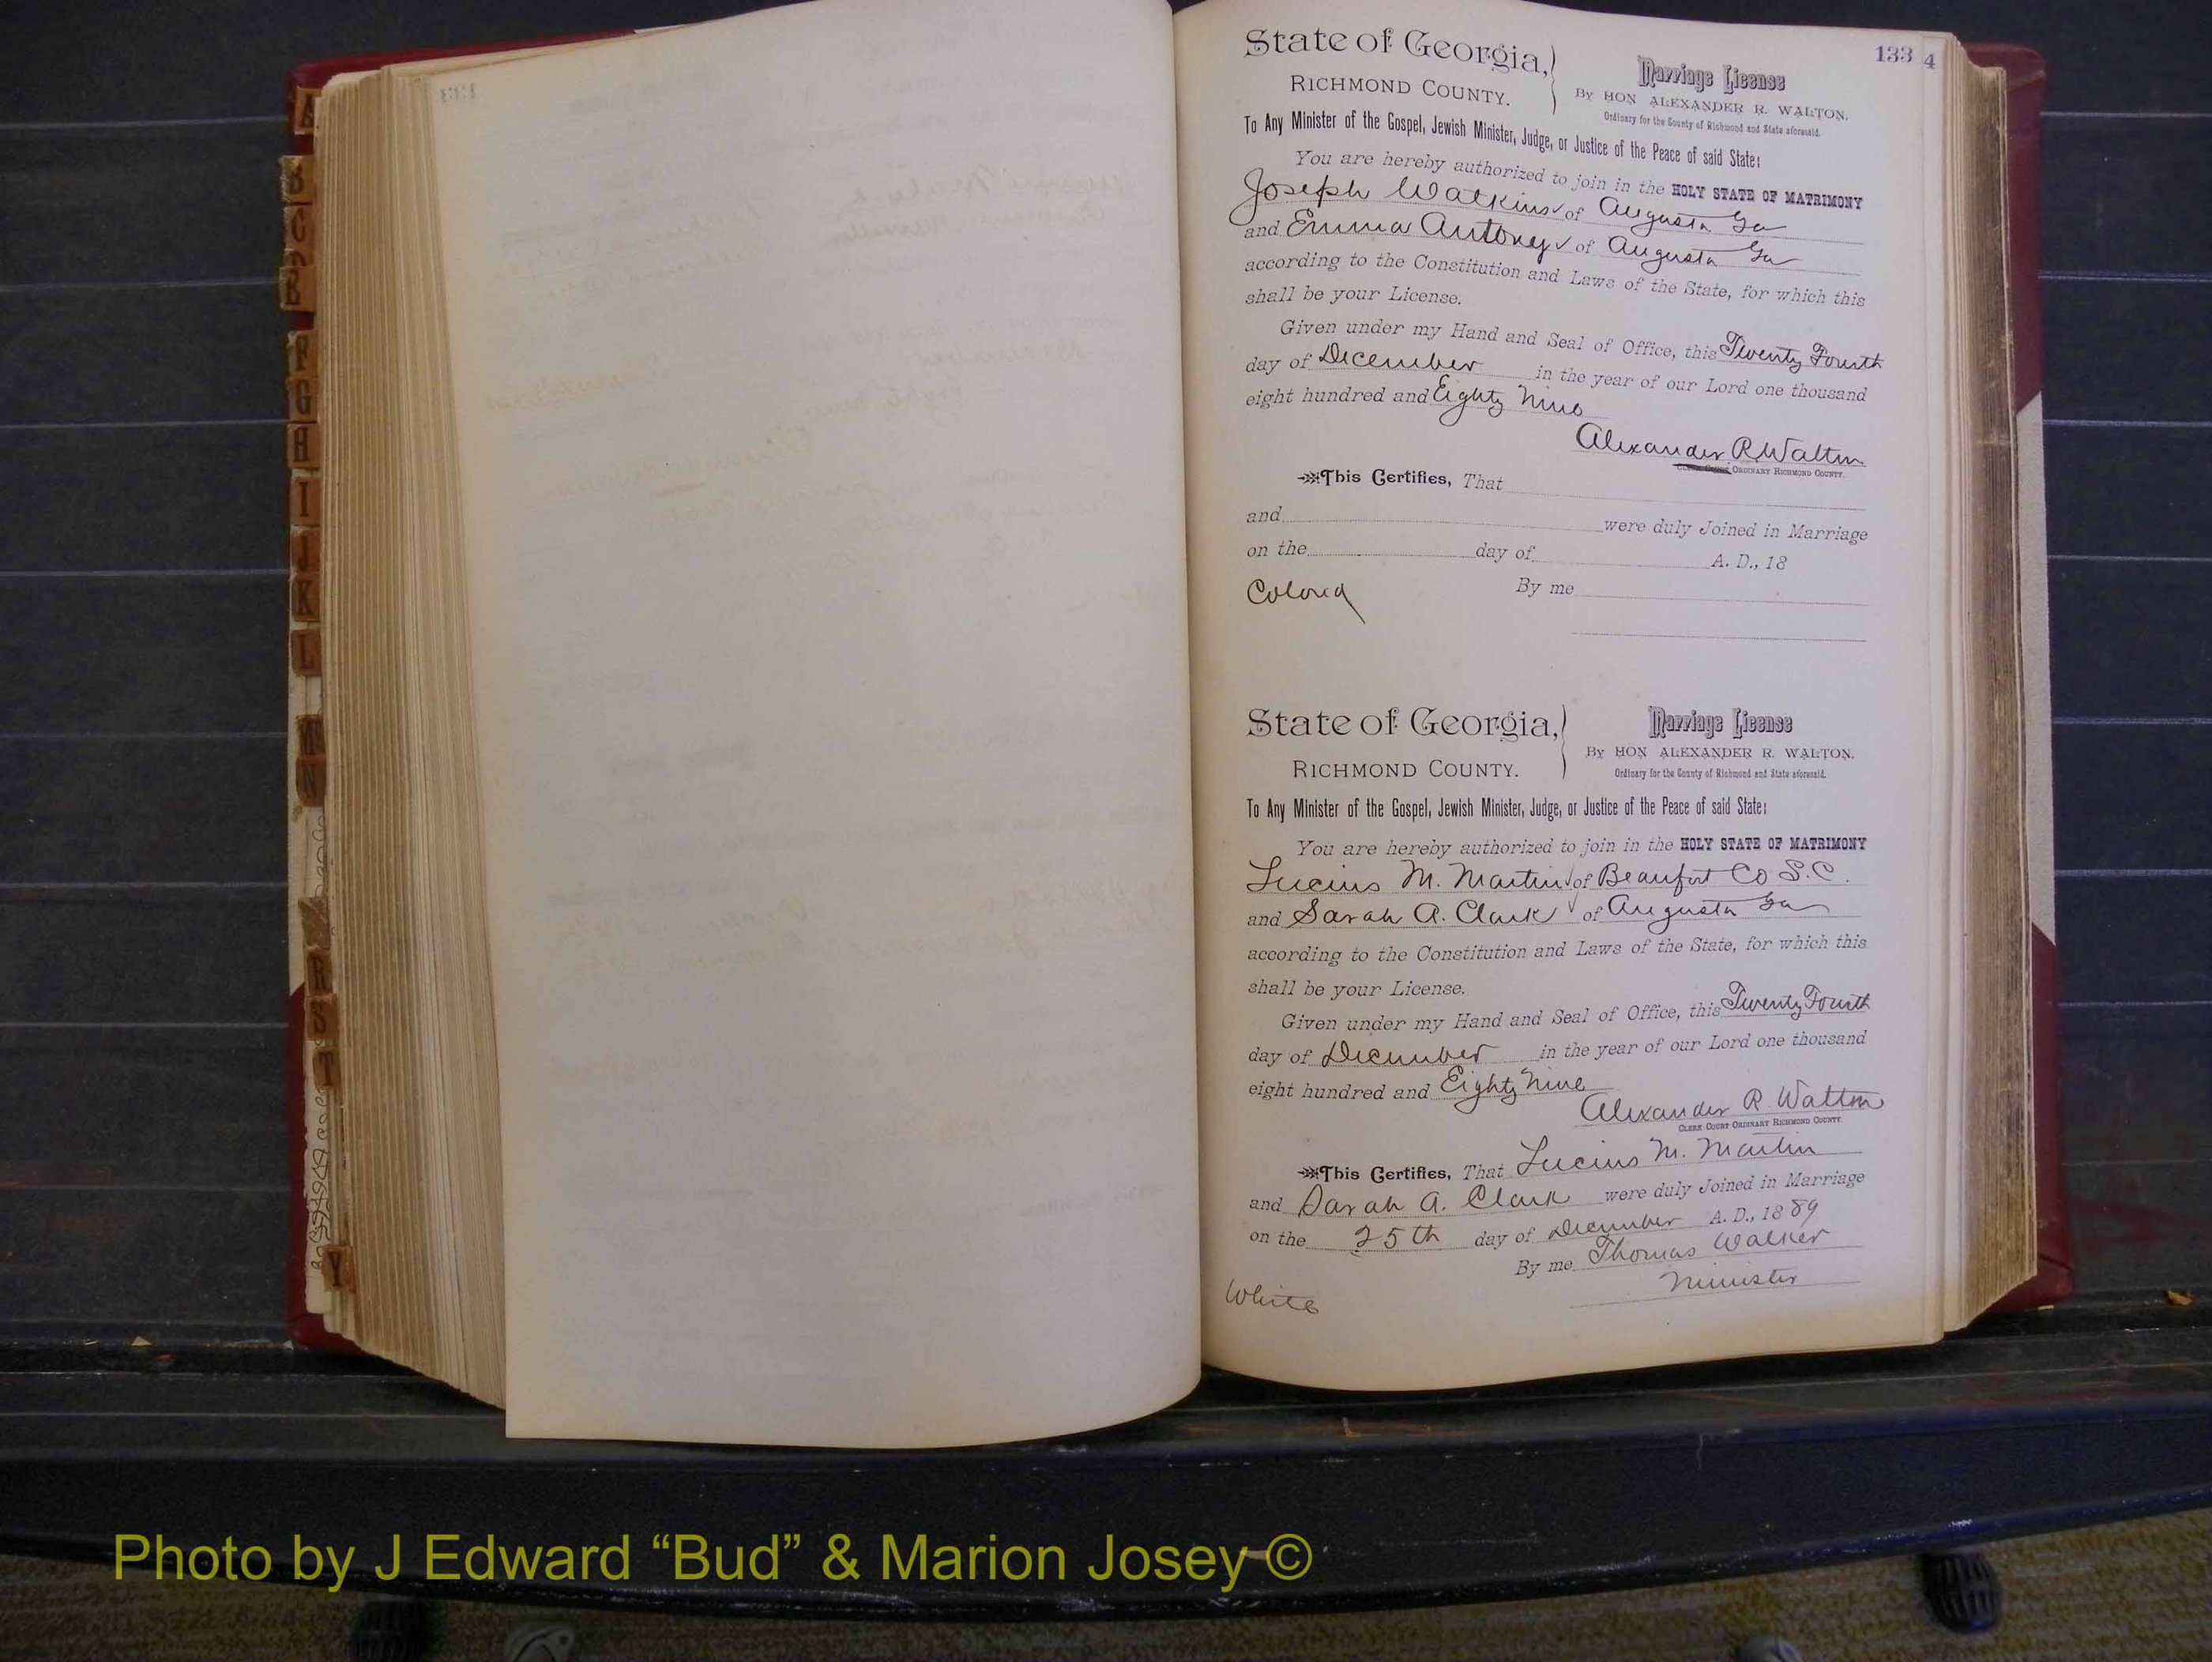 133 4
State of Georgia,
RICHMOND COUNTY.
Marriage License
By HON ALEXANDER R. WALTON.
Ordinary for the County of Richmond and State aforesaid.
To Any Minister of the Gospel, Jewish Minister, Judge, or Justice of the Peace of said State:
You are hereby authorized to join in the HOLY STATE OF MATRIMONY
Joseph Watkins of Augusta Ga
and Emma Antony of Augusta Ga
according to the Constitution and Laws of the State, for which this
shall be your License.
Given under my Hand and Seal of Office, this Twenty Fourth
day of December in the year of our Lord one thousand
eight hundred and Eighty Nine
Alexander R Walton
ORDINARY RICHMOND COUNTY.
This Certifies, That
and were duly Joined in Marriage
on the day of A. D., 18
Colored By me
State of Georgia,
RICHMOND COUNTY.
Marriage License
By HON ALEXANDER R. WALTON.
Ordinary for the County of Richmond and State aforesaid.
To Any Minister of the Gospel, Jewish Minister, Judge, or Justice of the Peace of said State:
You are hereby authorized to join in the HOLY STATE OF MATRIMONY
Lucius M. Martin of Beaufort Co S.C.
and Sarah A. Clark of Augusta Ga
according to the Constitution and Laws of the State, for which this
shall be your License.
Given under my Hand and Seal of Office, this Twenty Fourth
day of December in the year of our Lord one thousand
eight hundred and Eighty Nine
Alexander R. Walton
CLERK COURT ORDINARY RICHMOND COUNTY.
This Certifies, That Lucius M. Martin
and Sarah A. Clark were duly Joined in Marriage
on the 25th day of December A. D., 1889
By me Thomas Walker
Minister
White
A
B
C
E
F
G
H
I
J
K
L
N
R
S
T
Y
Photo by J Edward “Bud” & Marion Josey ©